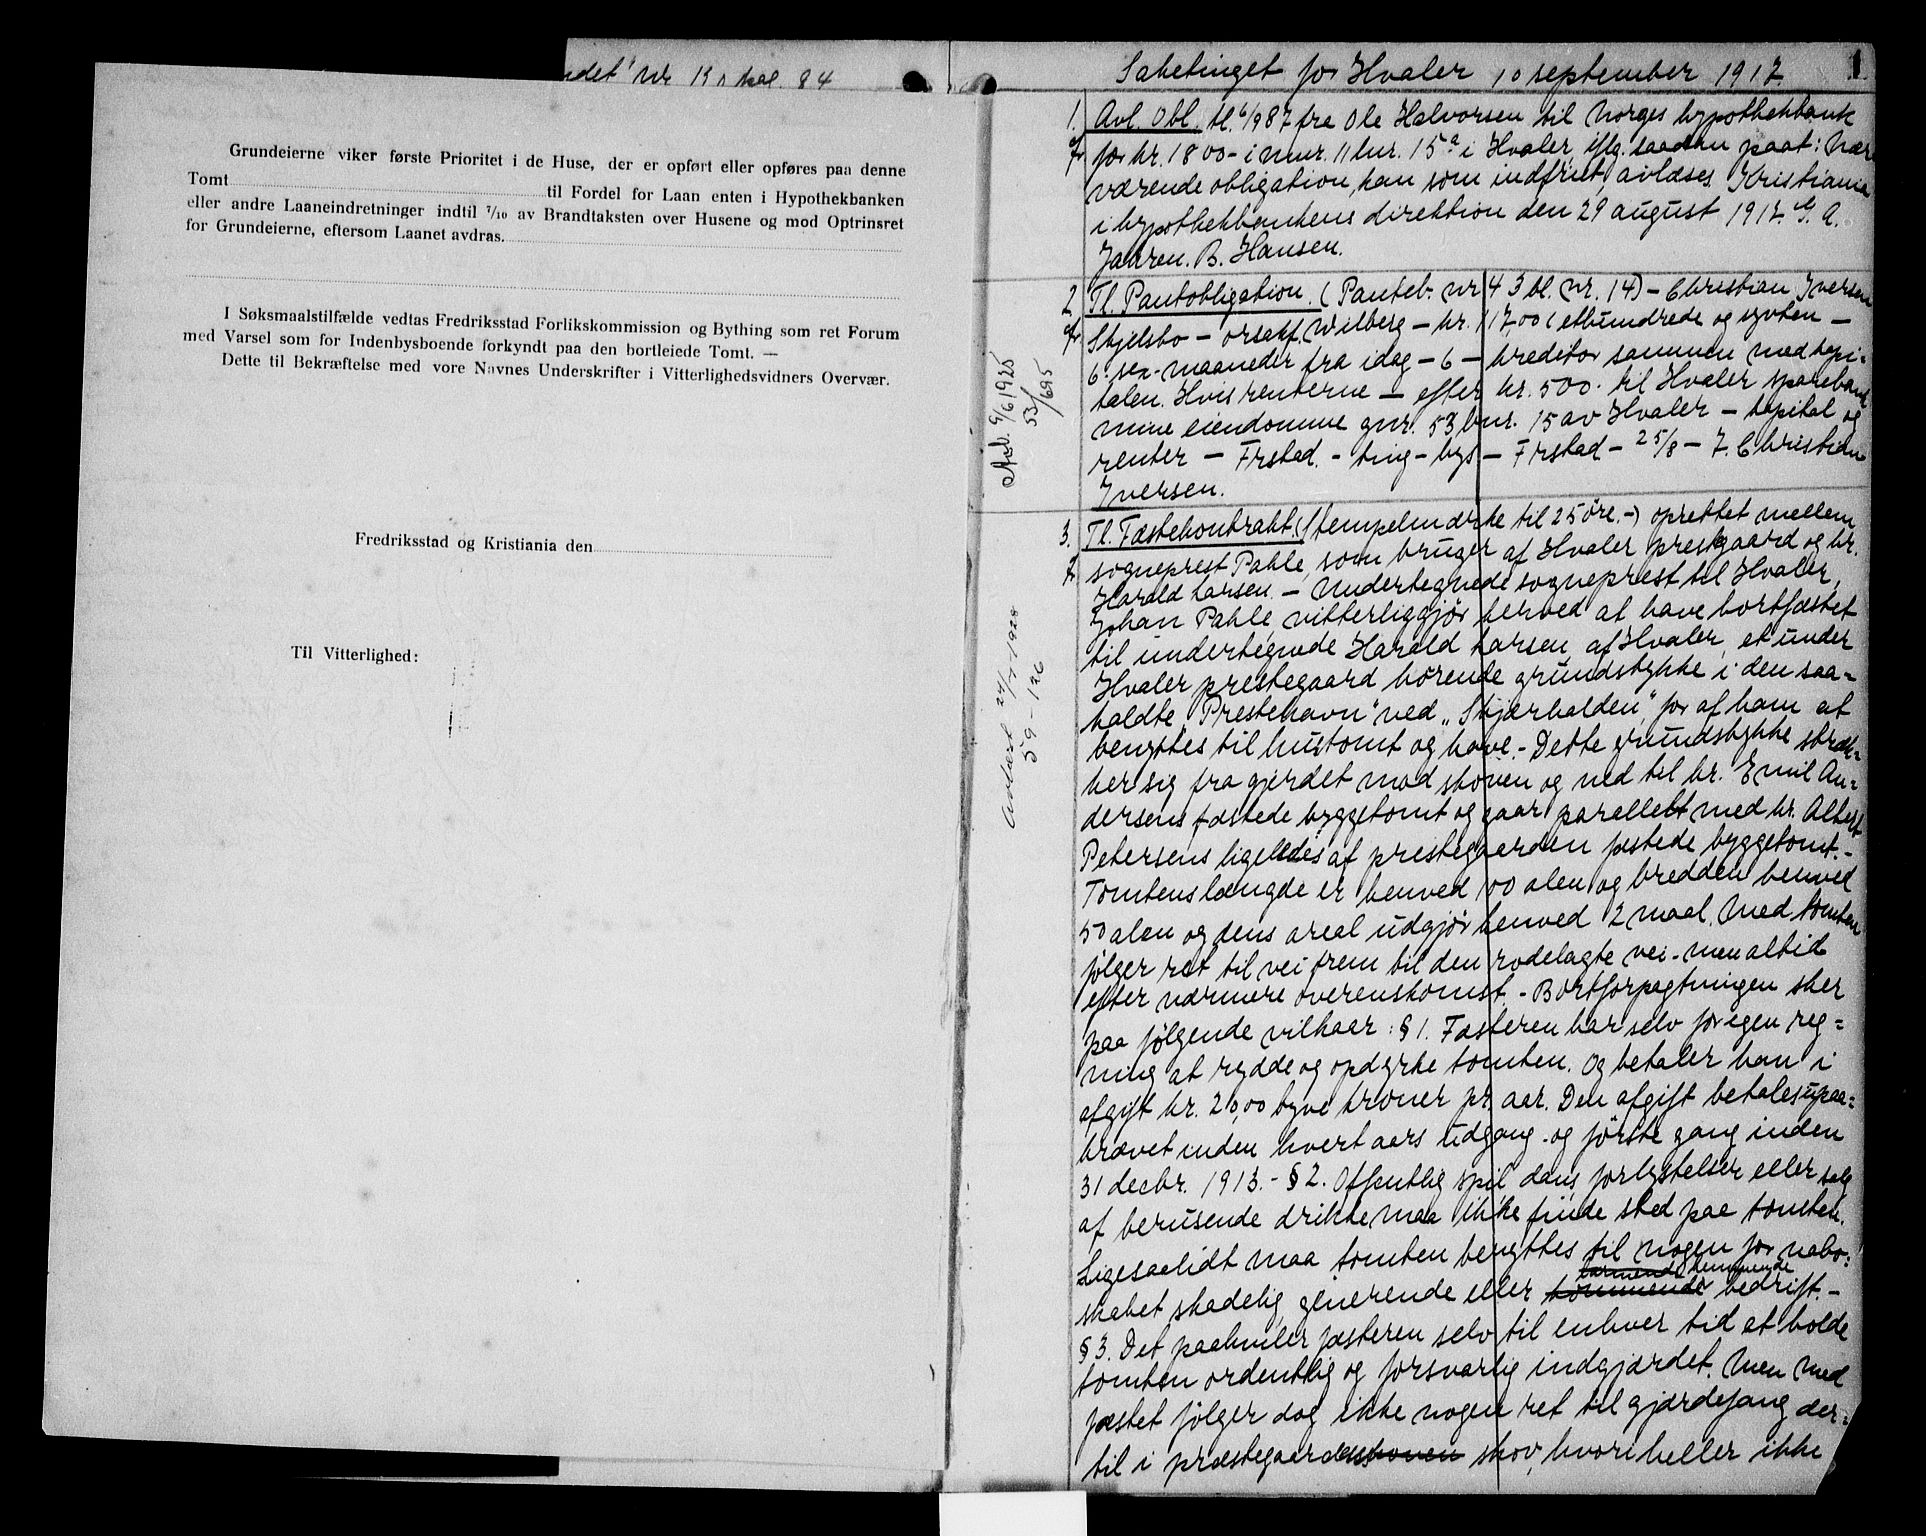 ndet" Nr 13
Grundeierne viker første Prioritet i de Huse, der er opført eller opføres paa denne
Tomt til Fordel for Laan enten i Hypothekbanken
eller andre Laaneindretninger indtil 7/10 av Brandtaksten over Husene og mod Optrinsret
for Grundeierne, eftersom Laanet avdras.
I Søksmaalstilfælde vedtas Fredriksstad Forlikskommission og Bything som ret Forum
med Varsel som for Indenbysboende forkyndt paa den bortleiede Tomt. —
Dette til Bekræftelse med vore Navnes Underskrifter i Vitterlighedsvidners Overvær.
Fredriksstad og Kristiania den
Til Vitterlighed:
Saketinget for Hvaler 10 september 1917. 1
1. Avl. Obl. tl. 6/9 87 fra Ole Halvorsen til Norges hypothekbank
for kr. 1800- i mnr. 11 lnr. 15a i Hvaler iflg. saadan paat: Nær
værende obligation kan som indfriet avlæses. Kristiania
i hypothekbankens direktion den 29 august 1917. G. A.
Jahren. B. Hansen.
2. Tl. Pantobligation. (Panteb. nr 43 bl. nr. 14) - Christian Iversen
Skjelsbo - orsakf. Wilberg - kr. 117,00 (ethundrede og sytten -
6 - sex - maaneder fra idag - 6 - kreditor sammen med kapi-
talen. Hvis renterne - efter kr. 500. til Hvaler sparebank
mine eiendomme gnr. 53 bnr. 15 av Hvaler - kapital og
renter - Frstad. - ting - bys - Frstad - 25/8 - 7. Christian
Iversen.
Avl. 9/6 1925
53/695
3. Tl. Fæstekontrakt. (Stempelmærke til 25 öre. -) oprettet mellem
sogneprest Pahle, som bruger af Hvaler prestgaard og hr.
Harald Larsen. - Undertegnede sogneprest til Hvaler,
Johan Pahle, vitterliggjör herved at have bortfæstet
til undertegnede Harald Larsen af Hvaler, et under
Hvaler prestegaard hörende grundstykke i den saa=
kaldte "Prestehavn" ved "Skjærhalden", for af ham at
benyttes til hustomt og have. - Dette grundstykke stræk=
ker sig fra gjerdet mod skoven og ned til hr. Emil An=
dersens fæstede byggetomt og gaar parellelt med hr. Albert
Petersens ligeledes af prestegaarden fæstede byggetomt. -
Tomtens længde er henved 100 alen og bredden henved
50 alen og dens areal udgjör henved 2 maal. Med tomten
fölger ret til vei frem til den rodelagte vei - men altid
efter nærmere overenskomst. - Bortforpagtningen sker
paa fölgende vilkaar: § 1. Fæsteren har selv for egen reg=
ning at rydde og opdyrke tomten. Og betaler han i
afgift kr. 20,00 tyve kroner pr. aar. Den afgift betales upaa=
krævet inden hvert aars udgang - og förste gang inden
31 decbr. 1913. - § 2. Offentlig spil, dans, forlystelser eller salg
af berusende drikke maa ikke finde sted paa tomten.
Ligesaalidt maa tomten benyttes til nogen for nabo=
skabet skadelig, generende eller larmende hemmende bedrift. -
§ 3. Det paahviler fæsteren selv til enhver tid at holde
tomten ordentlig og forsvarlig indgjærdet. Men med
fæstet fölger dog ikke nogen ret til gjærdefang der=
til i præstegaardsskoven skov, hvori heller ikke
Avlæst 24/7 1928
59 - 126